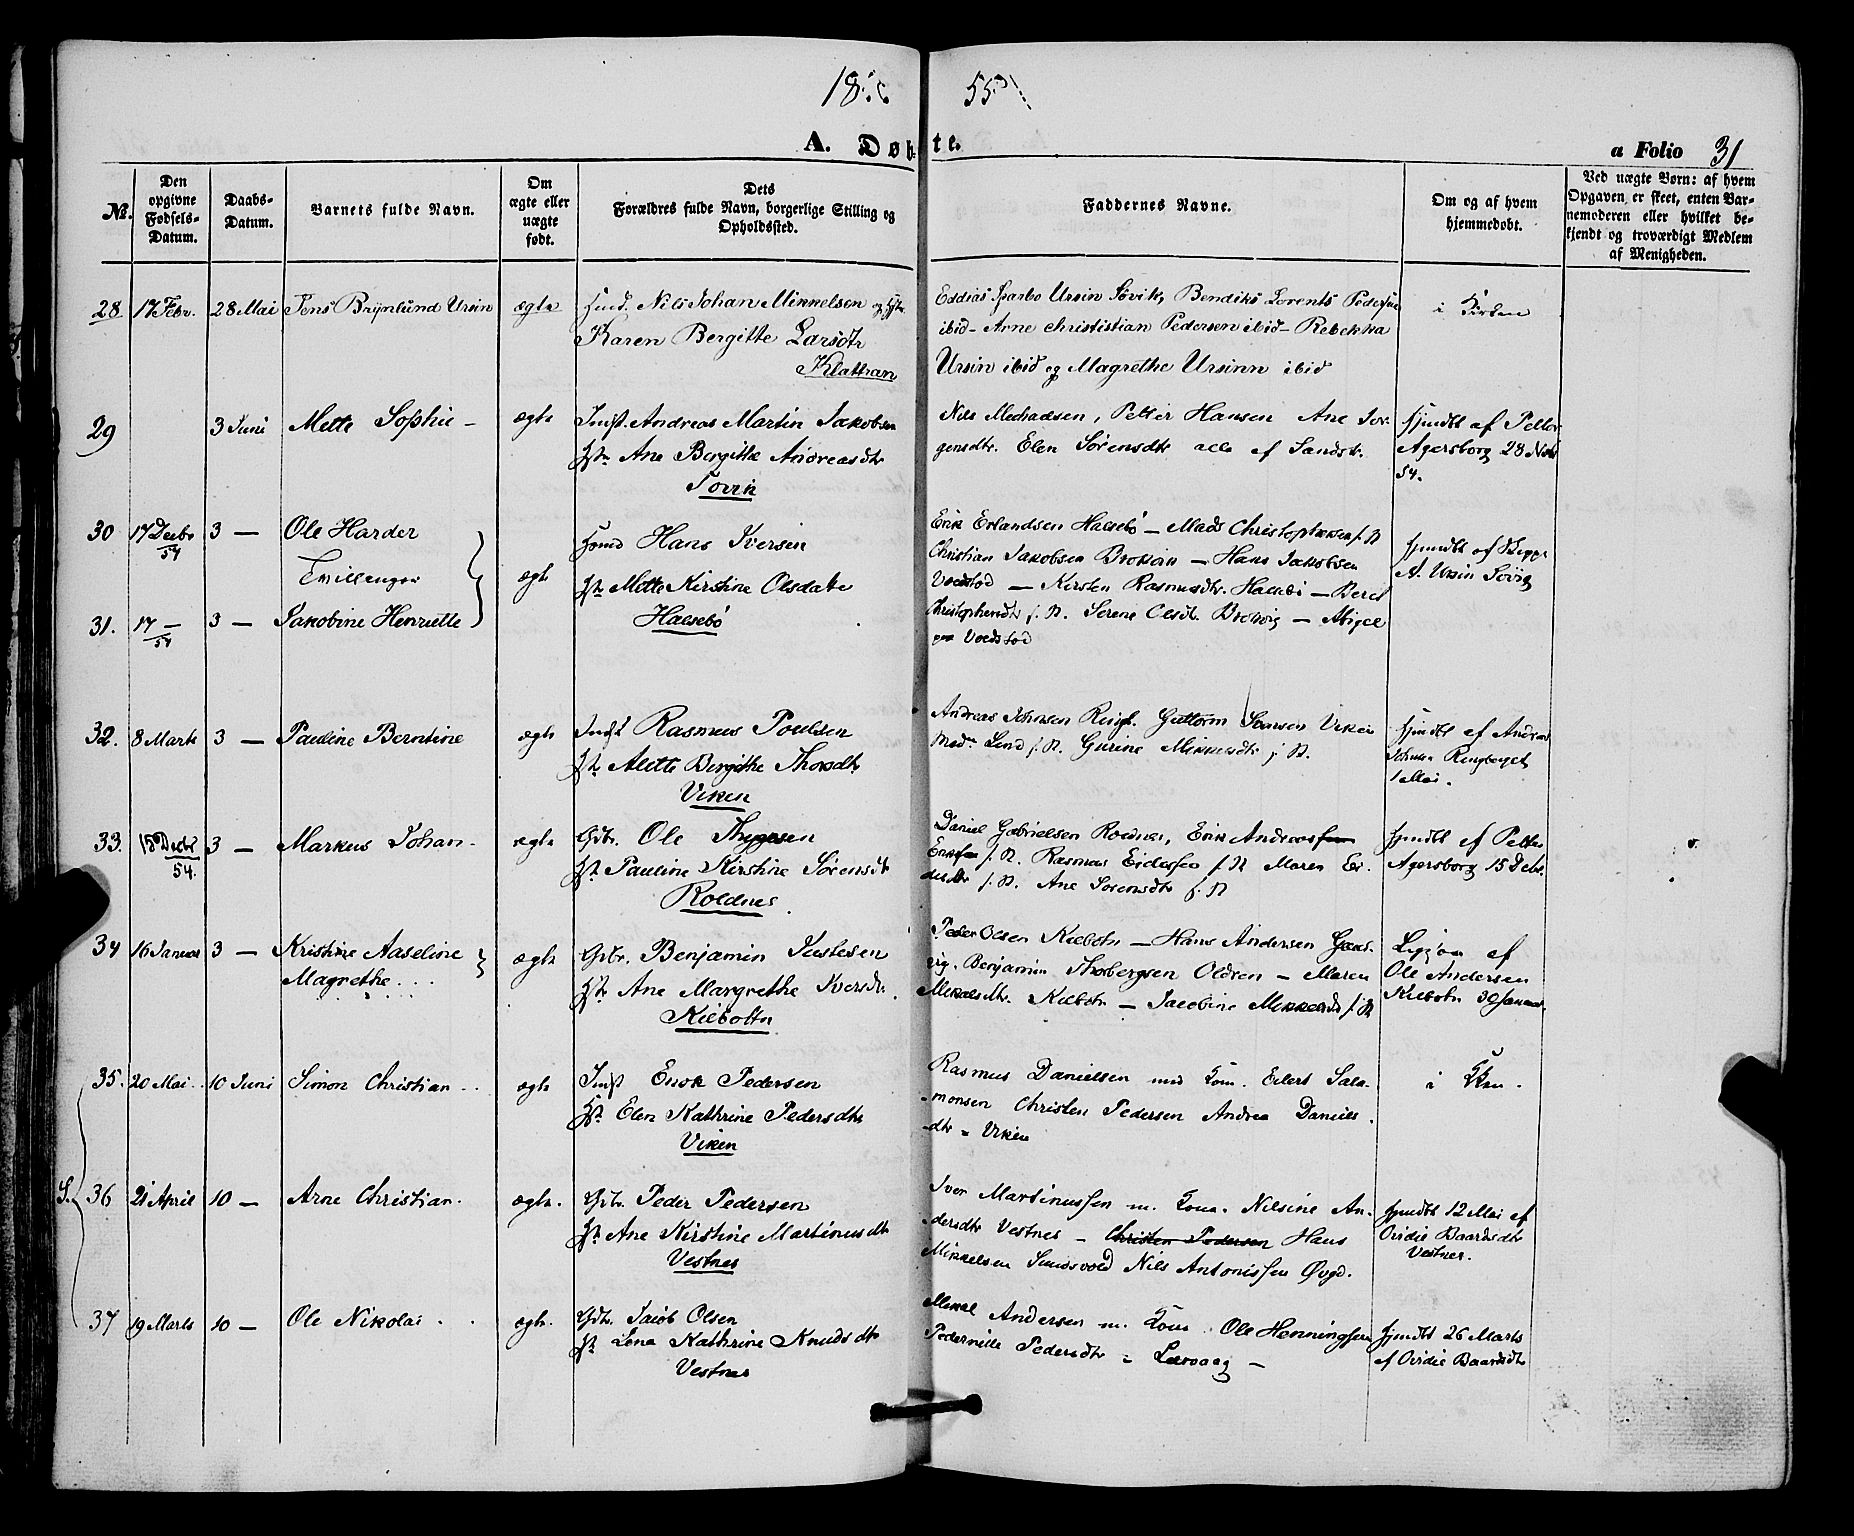 18
55
A. Døbte.
a Folio 31
No.
Den opgivne Fødsels-Datum.
Daabs-Datum.
Barnets fulde Navn.
Om ægte eller uægte født.
Dets Forældres fulde Navn, borgerlige Stilling og Opholdssted.
Faddernes Navne.
Om og af hvem hjemmedøbt.
Ved uægte Børn: af hvem Opgaven er skeet, enten Barnemoderen eller hvilket bekjendt og troværdigt Medlem af Menigheden.
28 17 Febr. 28 Mai Jens Brynlund Ursin ægte
Nils Johan Mikkelsen og Hst.
Karen Bergitte Larsdtr
Klattran
Eddias Sparbo Ursin Søvik, Bendiks Lorents Pedersen
ibid - Arne Christistian Pedersen ibid - Rebekka
Ursin ibid og Magrethe Ursinn ibid
i Kirken
29 3 Juni Mette Sophie - ægte
Indst. Andreas Martin Jakobsen
Hst. Ane Bergitte Andreasdtr
Sovik
Nils Michaelsen, Petter Hansen Ane Jor-
gensdtr. Elen Sørensdtr alle af Sandst.
hjmdbt af Petter
Agersborg 28 Novb
54.
30 17 Decbr 54 3 - Ole Harder
Tvillenger
31. 17 - 54 3 - Jakobine Henriette
ægte
Hans Iversen
Hst. Mette Kirstine Olsdatr
Halsebø
Erik Erlandsen Halsebø - Mads Christophersen f. St
Christian Jakobsen - Hans Jakobsen
- Kirsten Rasmusdtr. Halsebø - Beret
Christophersdtr f. St. Serene Olsdtr. - Abigel
hjmdbt af
A. Ursin Søvig
32. 8 Marts 3 - Pauline Berntine ægte
Indst Rasmus Poulsen
Hst. Alette Bergithe Thorsdtr
Viken
Andreas Johnsen Ringb. Guttorm Viken
Mad. Lind f. St. Gurine Mikkelsdtr f. St.
hjmdbt af Andreas
Johnsen Ringberget
1 Mai.
33. 15 Decbr 54. 3 - Markus Johan - ægte
Gdbr. Ole Thygesen
Hst. Pauline Kirstine Sørensdtr
Roldnes
Daniel Gabrielsen Roldnes, Erik Andreas
f. St. Rasmus f. St Maren
f. St. Ane Sorensdtr f. St
hjmdbt af Petter
Agersborg 15 Debr.
34 16 Januar 3 - Kristine Aaseline
Magrethe ...
ægte
Gdbr. Benjamin Justesen
Hst. Ane Margrethe Iversdtr.
Kilbottn
Peder Olsen Kilbotn - Hans Andersen
Benjamin Thorbergsen Oldren - Maren
Mikalsdtr. Kilbotn - Jacobine Mikkelsdtr f. St
Ligesom af
Ole Andersen
Kilbotn 30 Januar.
35. 20 Mai. 10 Juni Simon Christian . . ægte
Indst Enok Pedersen
Hst. Elen Kathrine Pedersdtr
Viken
Rasmus Danielsen med Kone. Eilert Sala-
-monsen Christen Pedersen Andrea Daniels
-dtr - Viken
i Kken.
S.
36 21 April 10 - Arne Christian. ægte.
Gdbr. Peder Pedersen
Hst Ane Kirstine Martinusdtr
Vestnes
Iver Martinussen m. Kone. Nilsine An-
-dersdtr Vestnes - Christen Pedersen Hans
Mikkelsen Sundsvold Nils Antonissen Øvgd.
hjmdbt 12 Mai af
Ovidie Baardsdtr
Vestnes.
37 19 Marts 10 - Ole Nikolai . . ægte.
Gdbr. Jacob Olsen
Hst Lena Kathrine Knudsdtr
Vestnes
Mikal Andersen m. Kone. Ole Henningsen
Pedernille Pedersdtr - Larvaag -
hjmdbt 26 Marts
af Ovidie Baardsdtr